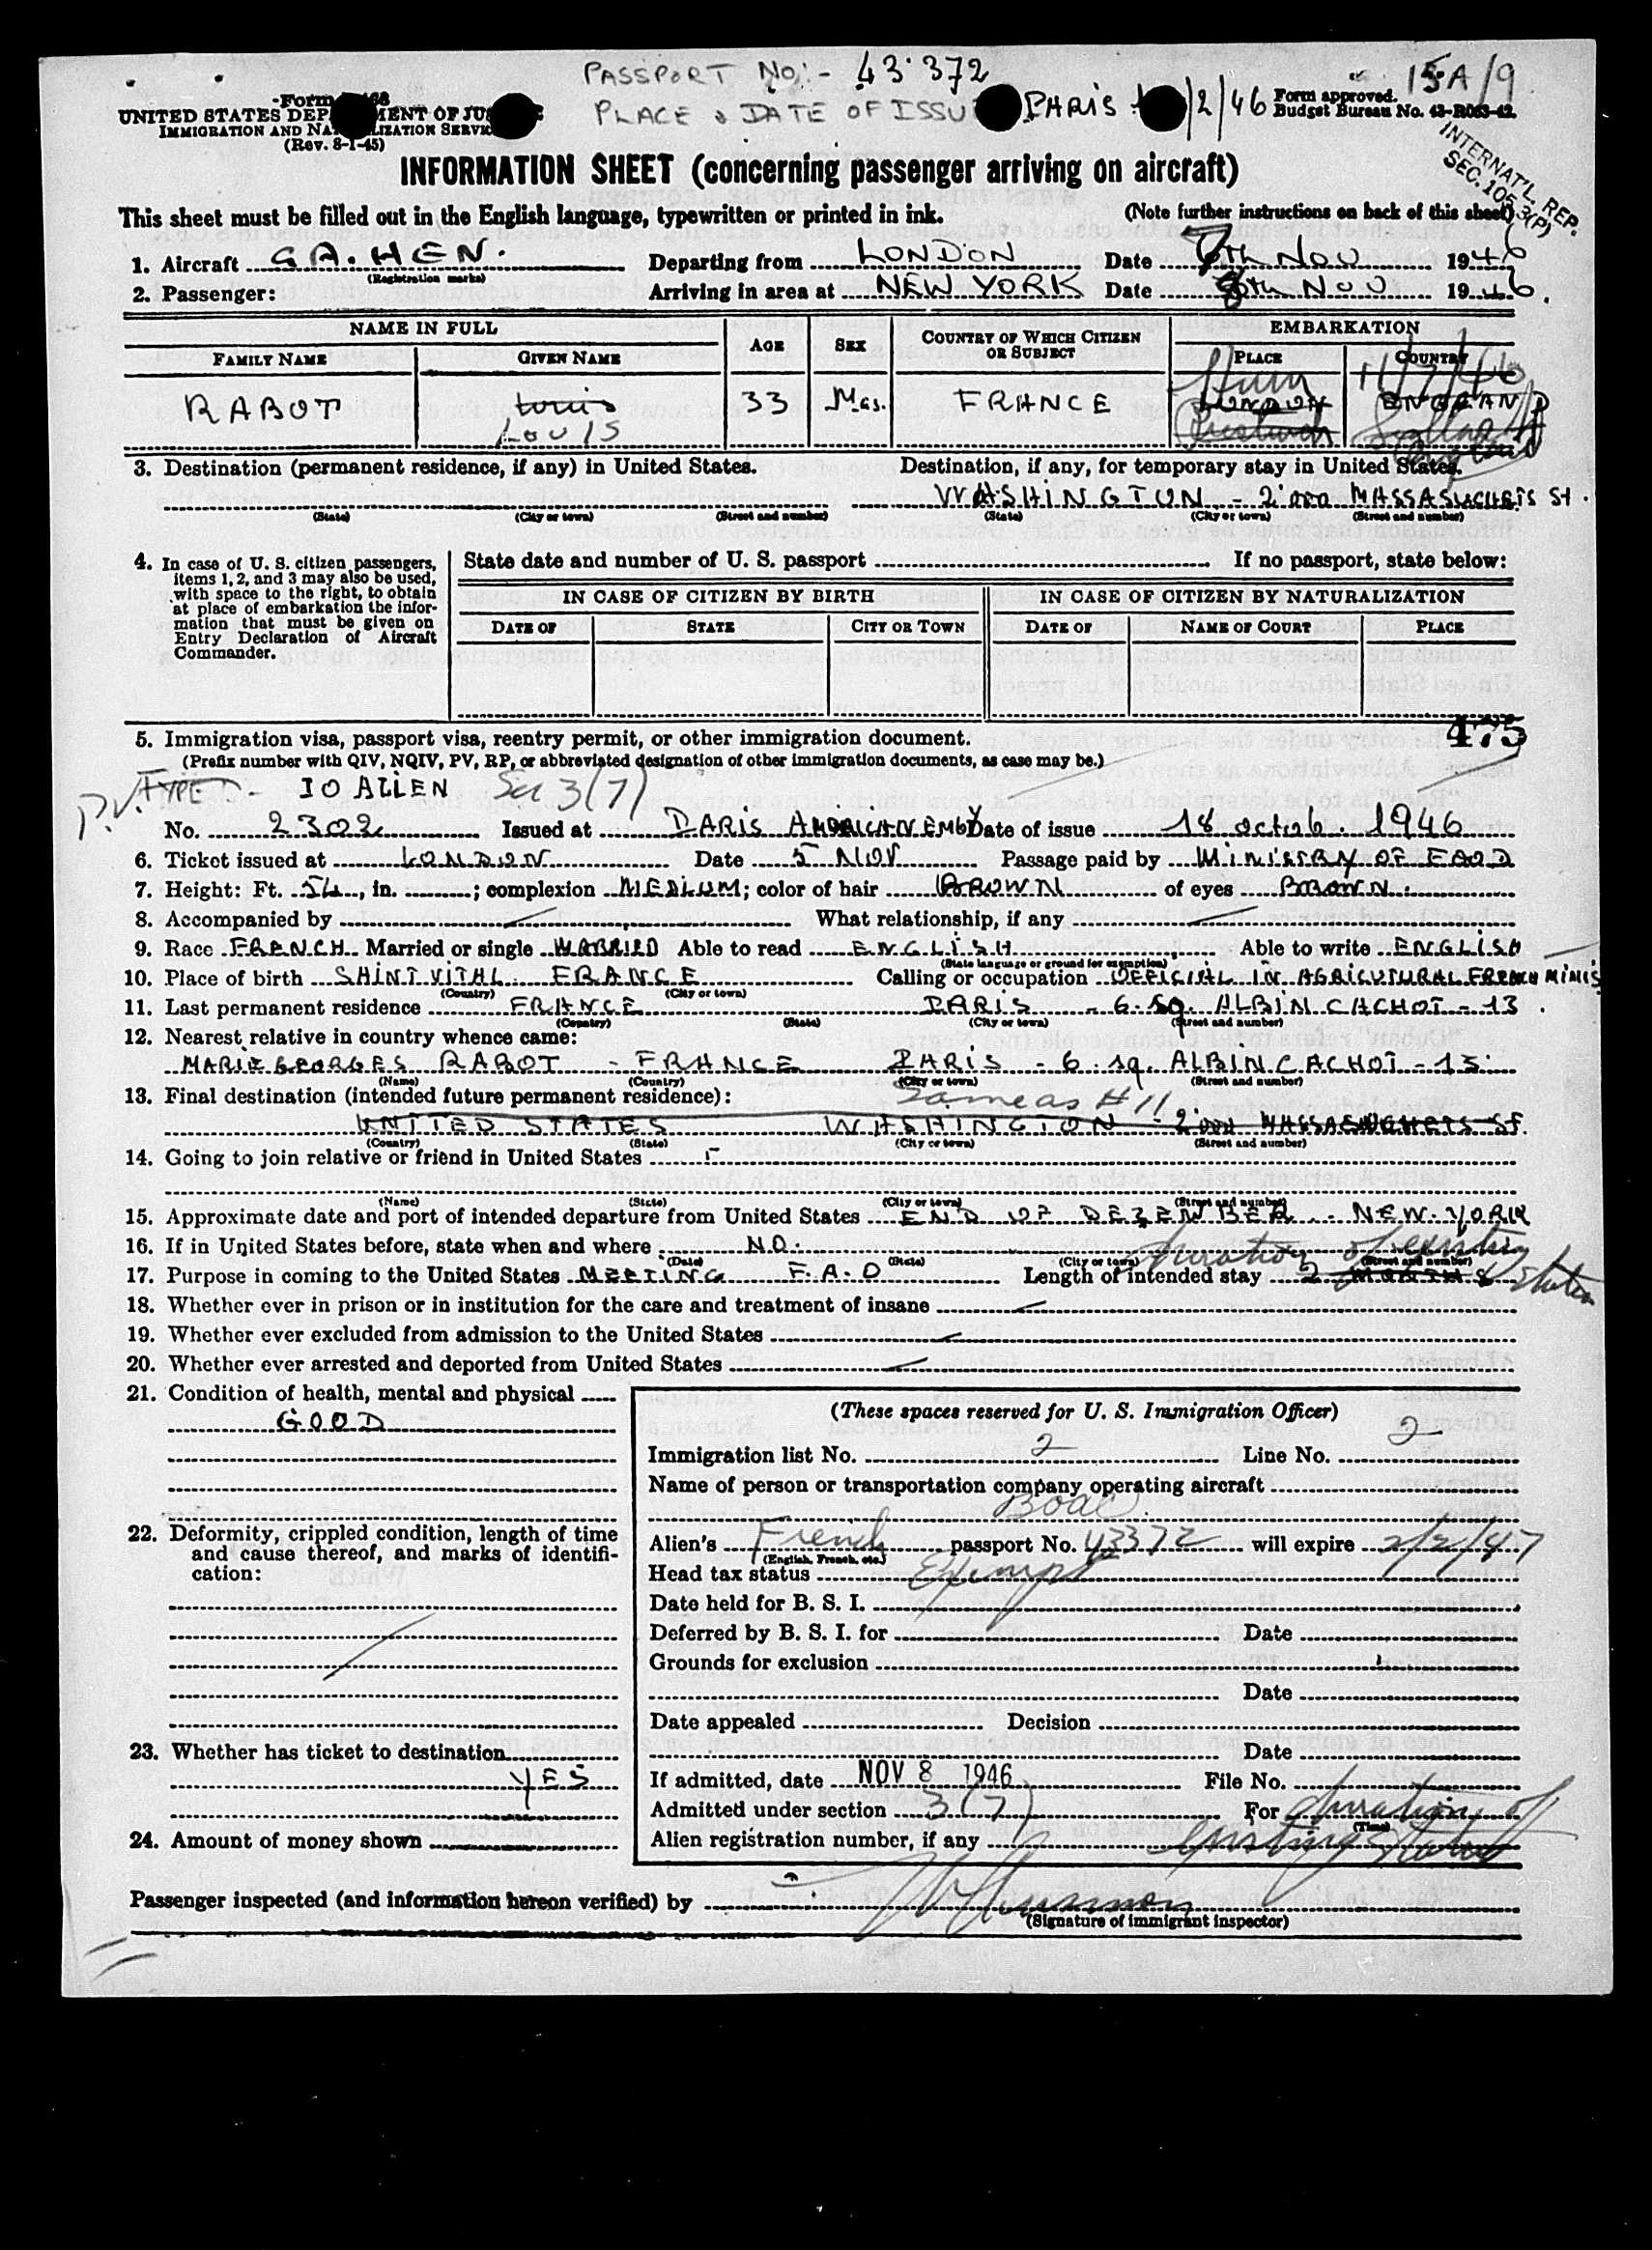 PASSPORT No:- 43.372
15A/9
PLACE & DATE OF ISSU PARIS /2/46
Form approved.
Budget Bureau No. 43-R063-42.
Form
UNITED STATES DEP MENT OF JUS
IMMIGRATION AND NA LIZATION SERVIC
(Rev. 8-1-45)
INTERNAT'L. REP.
SEC. 105.3(P)
INFORMATION SHEET (concerning passenger arriving on aircraft)
This sheet must be filled out in the English language, typewritten or printed in ink. (Note further instructions on back of this sheet)
1. Aircraft G A. HEN. Departing from LONDON Date 7th Nov 1946
(Registration marks)
2. Passenger: Arriving in area at NEW YORK Date 8th Nov 1946.
NAME IN FULL AGE SEX COUNTRY OF WHICH CITIZEN OR SUBJECT EMBARKATION
FAMILY NAME GIVEN NAME PLACE COUNTRY
11/7/46
RABOT Louis 33 Mas. FRANCE LONDON ENGLAND
Louis
3. Destination (permanent residence, if any) in United States. Destination, if any, for temporary stay in United States.
WASHINGTON - 2'000 MASSASUCHETS St.
(State) (City or town) (Street and number) (State) (City or town) (Street and number)
4. In case of U. S. citizen passengers, items 1, 2, and 3 may also be used, with space to the right, to obtain at place of embarkation the information that must be given on Entry Declaration of Aircraft Commander.
State date and number of U. S. passport If no passport, state below:
IN CASE OF CITIZEN BY BIRTH IN CASE OF CITIZEN BY NATURALIZATION
DATE OF STATE CITY OR TOWN DATE OF NAME OF COURT PLACE
475
5. Immigration visa, passport visa, reentry permit, or other immigration document.
(Prefix number with QIV, NQIV, PV, RP, or abbreviated designation of other immigration documents, as case may be.)
P.V. TYPE:- IO ALIEN Sec 3(7)
No. 2302 Issued at PARIS AMERICAN EMBY Date of issue 18 octob. 1946
6. Ticket issued at LONDON Date 5 NOV Passage paid by MINISTRY OF FOOD
7. Height: Ft. 54, in. ; complexion MEDIUM; color of hair BROWN of eyes BROWN.
8. Accompanied by What relationship, if any
9. Race FRENCH Married or single MARRIED Able to read ENGLISH Able to write ENGLISH
(State language or ground for exemption)
10. Place of birth SAINT VITAL FRANCE Calling or occupation OFFICIAL IN AGRICUTURAL FRENCH MINIS
(Country) (City or town)
11. Last permanent residence FRANCE PARIS - 6. sq. ALBIN CACHOT - 13.
(Country) (State) (City or town) (Street and number)
12. Nearest relative in country whence came:
MARIE GEORGES RABOT - FRANCE PARIS - 6. sq. ALBIN CACHOT - 13.
(Name) (Country) (City or town) (Street and number)
13. Final destination (intended future permanent residence): Same as #11
UNITED STATES WASHINGTON - 2'000 MASSASUCHETS ST.
(Country) (State) (City or town) (Street and number)
14. Going to join relative or friend in United States
(Name) (State) (City or town) (Street and number)
15. Approximate date and port of intended departure from United States END OF DEZEMBER - NEW-YORK
16. If in United States before, state when and where NO.
(Date) (State) (City or town) (Street and number)
duration of existing status
17. Purpose in coming to the United States MEETING F.A.O Length of intended stay 2 MONTHS
18. Whether ever in prison or in institution for the care and treatment of insane
19. Whether ever excluded from admission to the United States
20. Whether ever arrested and deported from United States
21. Condition of health, mental and physical
GOOD
22. Deformity, crippled condition, length of time and cause thereof, and marks of identification:
23. Whether has ticket to destination
YES
24. Amount of money shown
(These spaces reserved for U. S. Immigration Officer)
Immigration list No. 2 Line No. 2
Name of person or transportation company operating aircraft
BOAC
Alien's French passport No. 43372 will expire 2/2/47
(English, French, etc.)
Head tax status Exempt
Date held for B. S. I.
Deferred by B. S. I. for Date
Grounds for exclusion
Date
Date appealed Decision
Date
If admitted, date NOV 8 1946 File No.
Admitted under section 3(7) For duration of
(Time)
Alien registration number, if any existing status
Passenger inspected (and information hereon verified) by
(Signature of immigrant inspector)